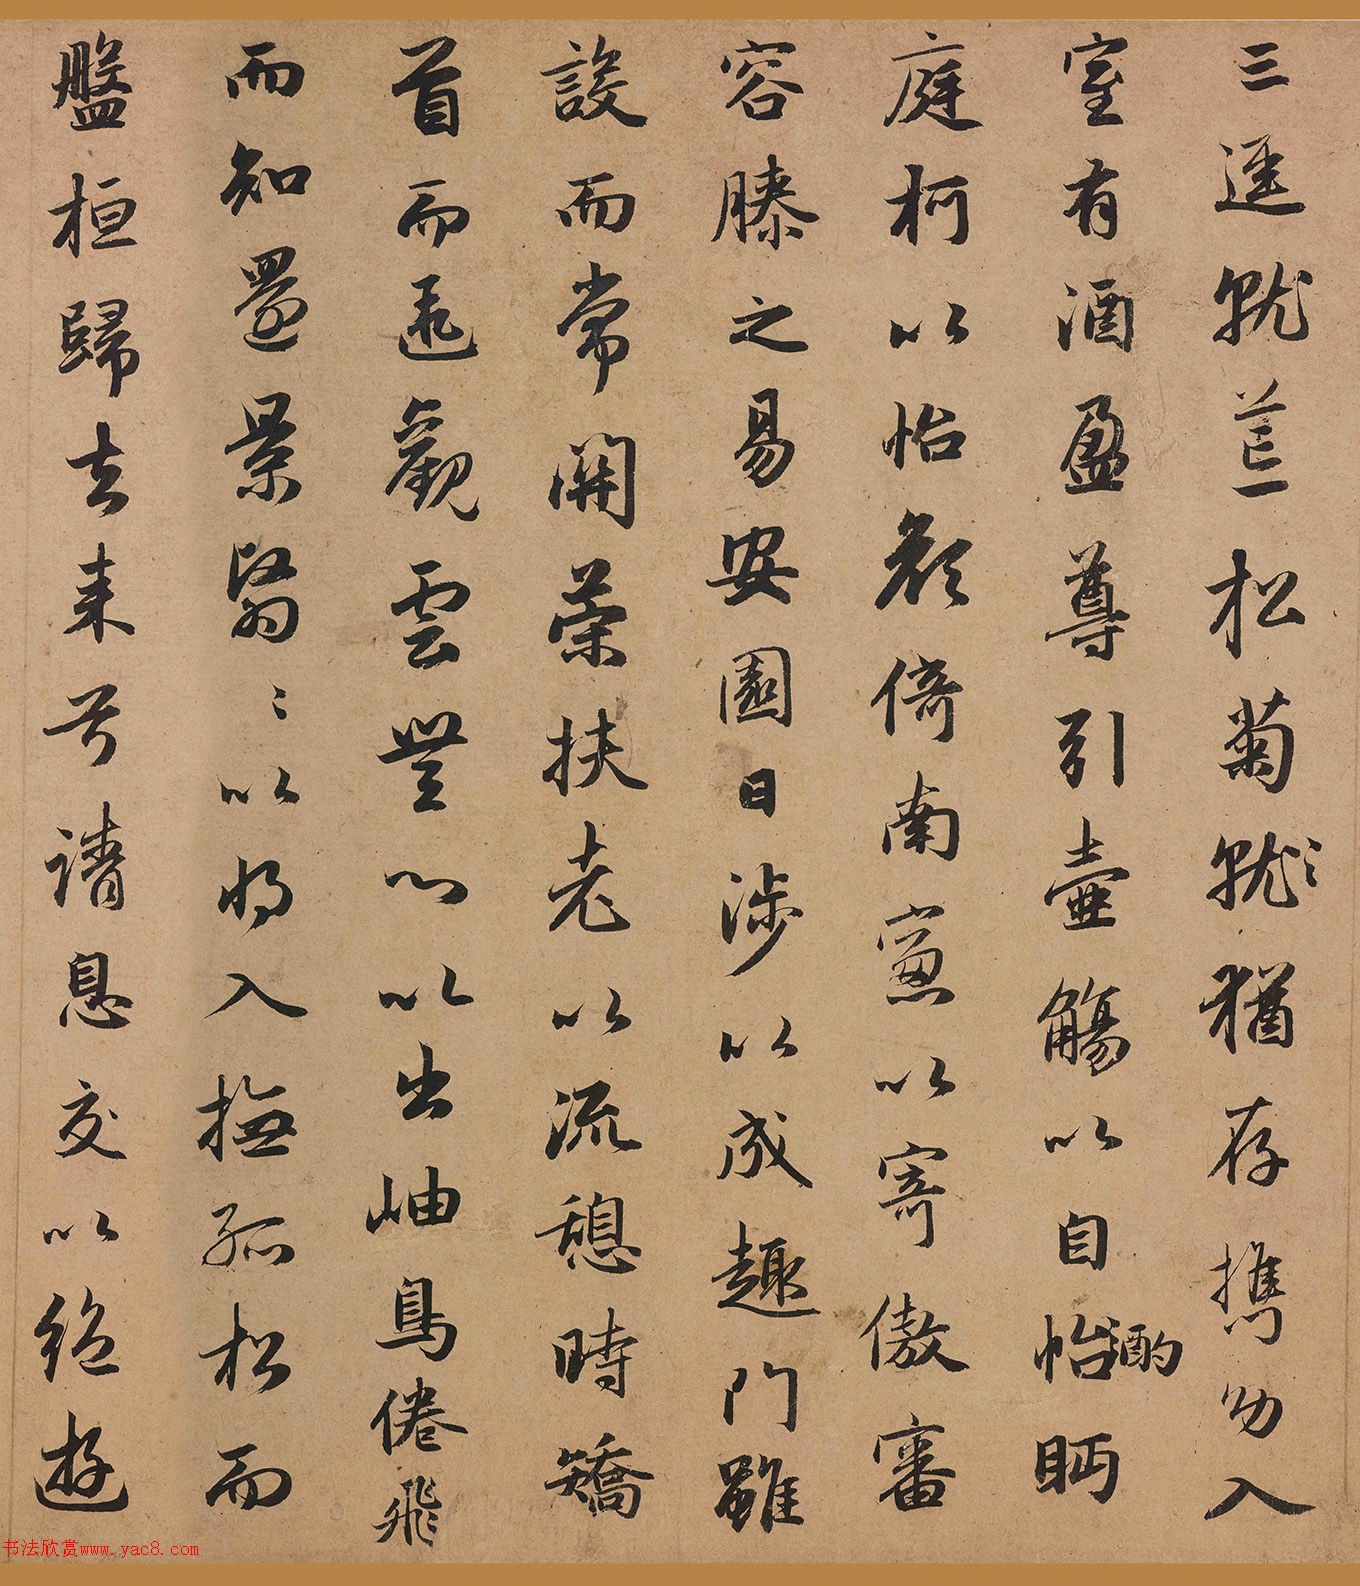 三逕就荒松菊就〻猶存携幼入
室有酒盈尊引壷觴以自怡酌眄
庭柯以怡顔倚南窻以寄傲審
容膝之易安園日涉以成趣門雖
設而常開荣扶老以流憩時矯
首而遐觀雲無心以出岫鳥倦飛
而知還景翳〻以将入撫孤松而
盤桓歸去来兮請息交以絶遊
书法欣赏www.yac8.com